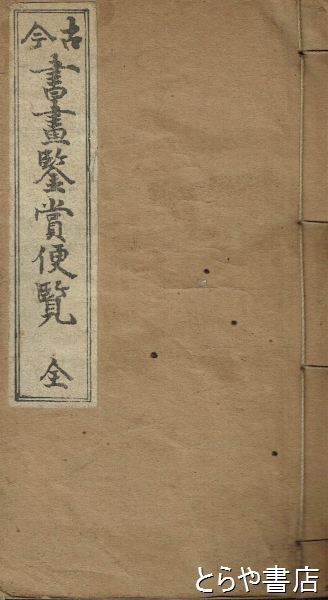 古今
書畫鑒賞便覧 全
とらや書店